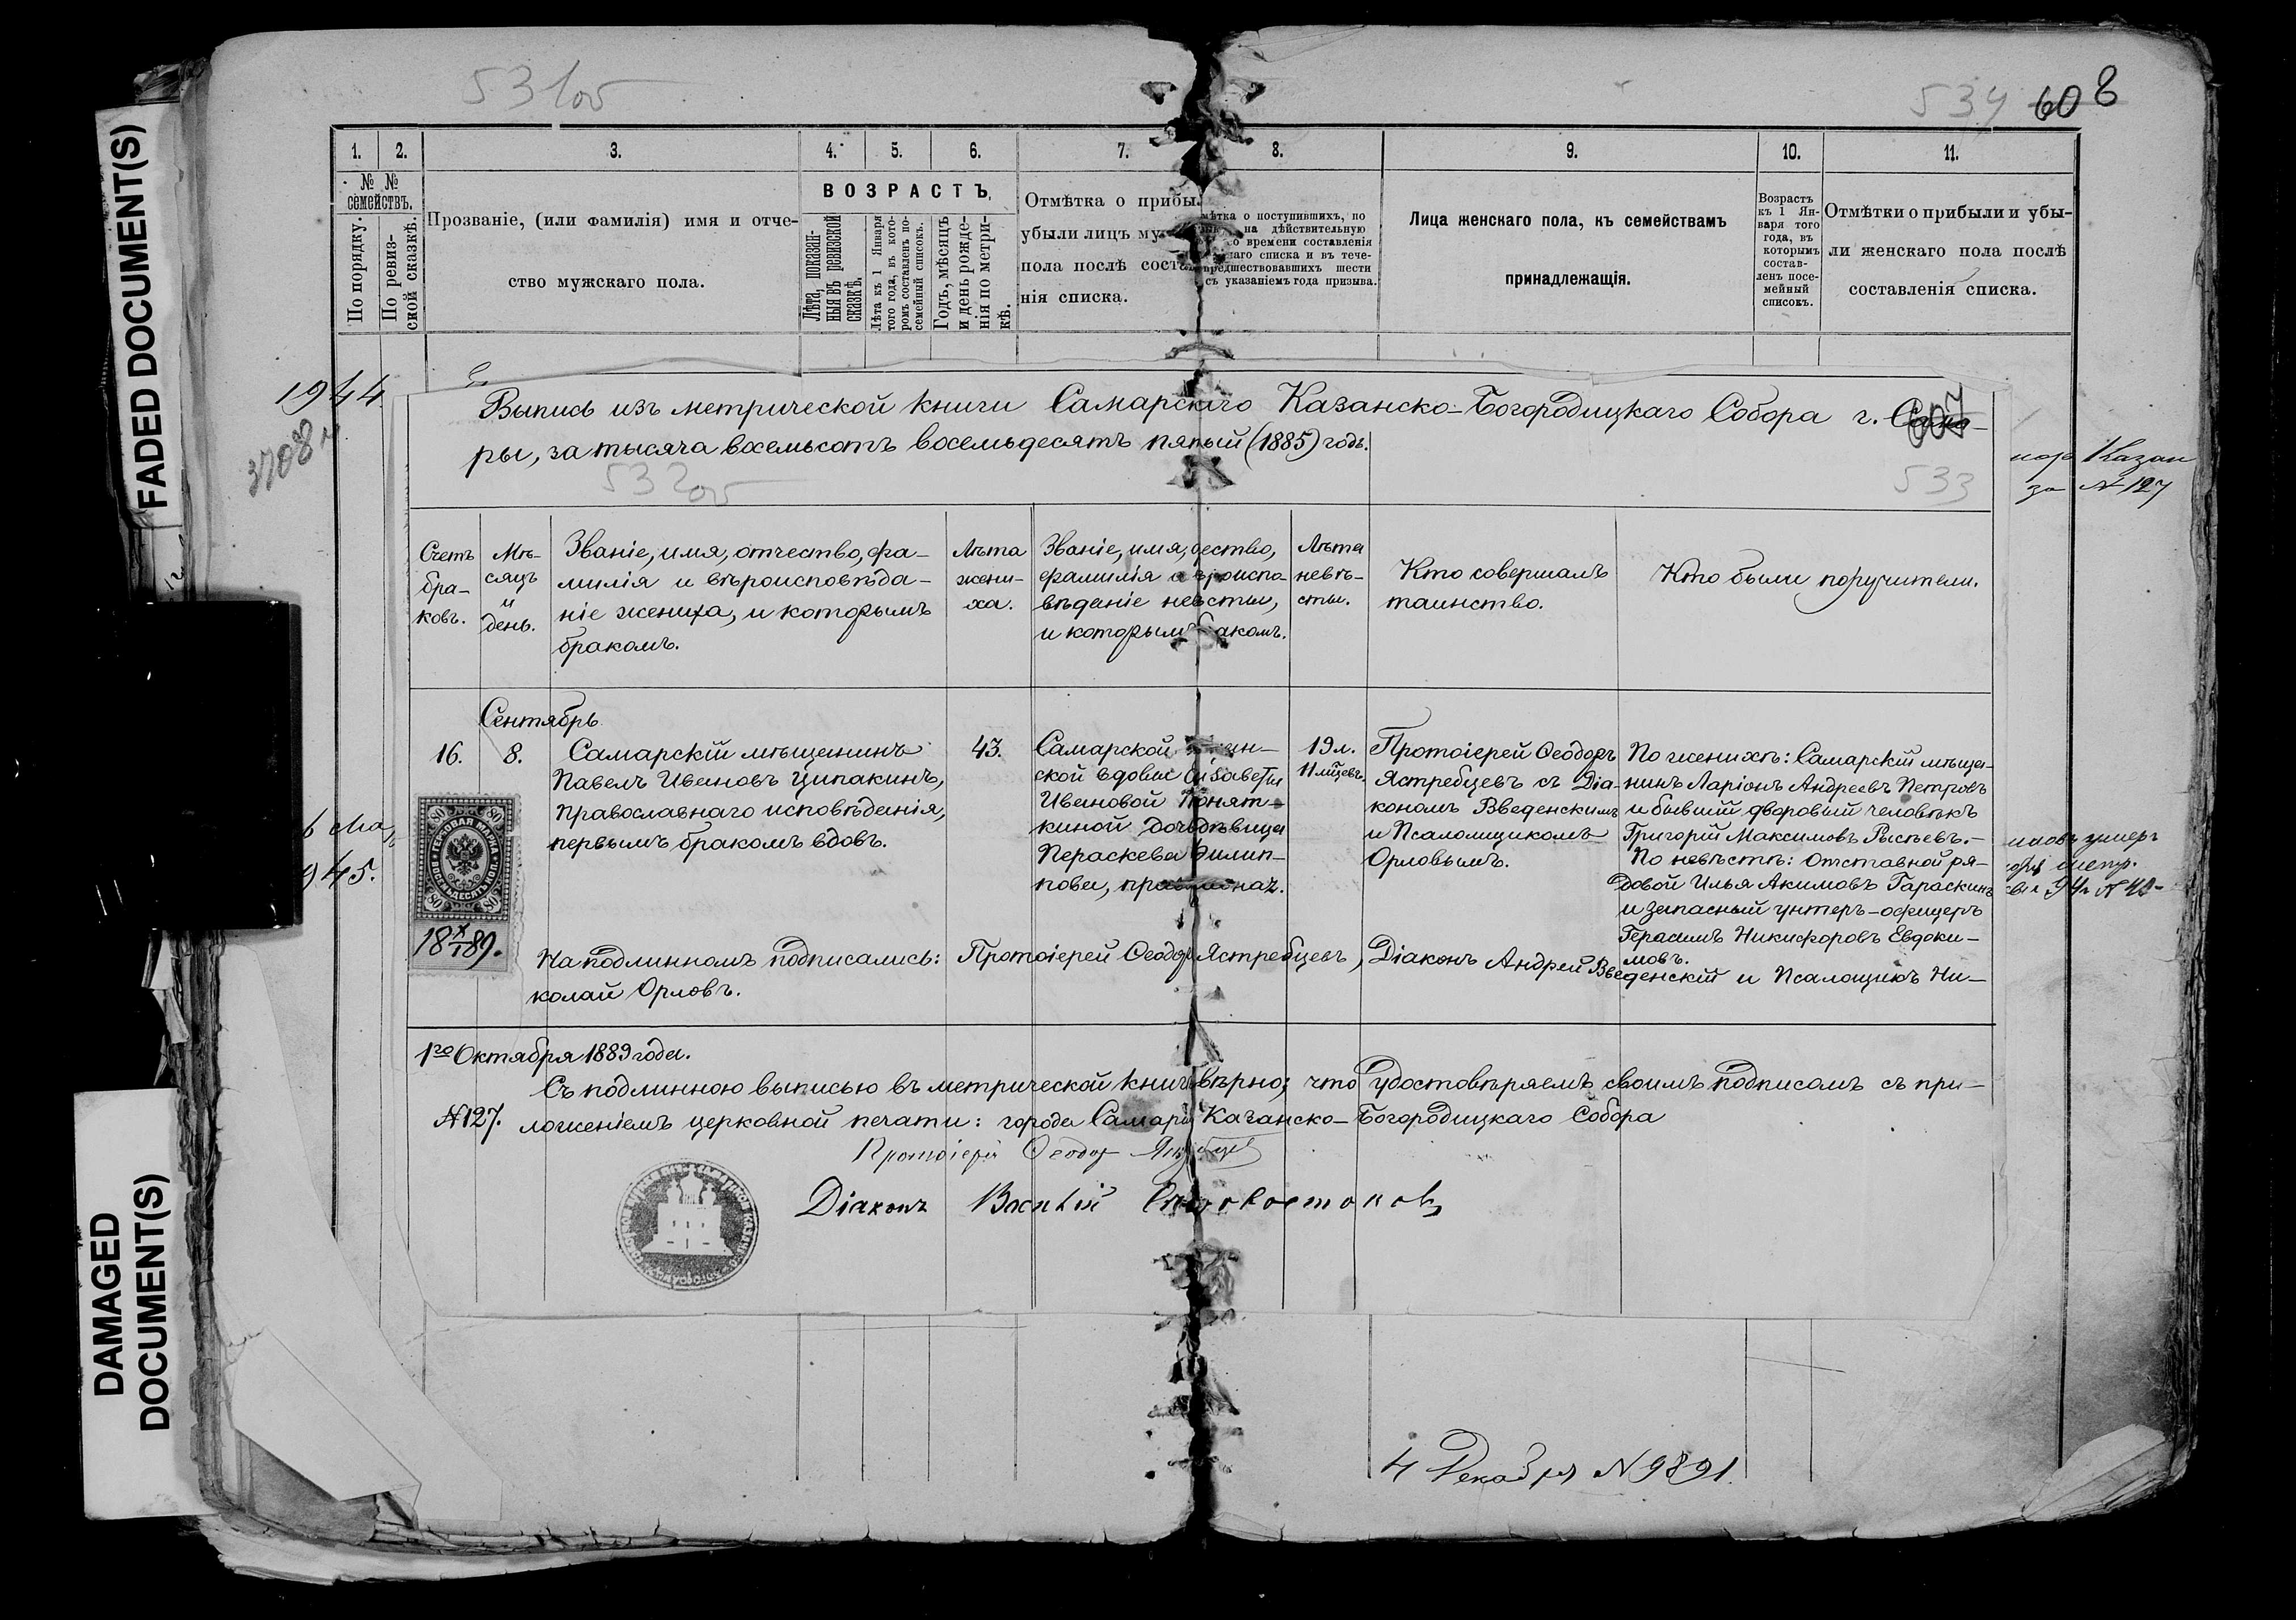 FADED DOCUMENT(S)
DAMAGED
DOCUMENT(S)
531об
534 608
1. 2. 3. 4. 5. 6. 7. 8. 9. 10. 11.
№ №
семействъ.
По порядку.
По ревиз-
ской сказкѣ.
Прозваніе, (или фамилія) имя и отче-
ство мужскаго пола.
ВОЗРАСТЪ.
Лѣта, показан-
ныя въ ревизской
сказкѣ.
Лѣта къ 1 Января
того года, въ кото-
ромъ составленъ по-
семейный списокъ.
Годъ, мѣсяцъ
и день рожде-
нія по метри-
кѣ.
Отмѣтка о прибы
убыли лицъ му
пола послѣ соста
нія списка.
мѣтка о поступившихъ, по
на дѣйствительную
о времени составленія
наго списка и въ тече-
предшествовавшихъ шести
съ указаніемъ года призыва.
Лица женскаго пола, къ семействамъ
принадлежащія.
Возрастъ
къ 1 Ян-
варя того
года, въ
которымъ
состав-
ленъ посе-
мейный
списокъ.
Отмѣтки о прибыли и убы-
ли женскаго пола послѣ
составленія списка.
1944.
3708
Выпись изъ метрической книги Самарскаго Казанско-Богородицкаго Собора г. Сама-
ры, за тысяча восемьсотъ восемьдесятъ пятый (1885) годъ.
607
532об
533
Казан
за № 127
Счетъ
бра-
ковъ.
Мѣ-
сяцъ
и
день.
Званіе, имя, отчество, фа-
милія и вѣроисповѣда-
ніе жениха, и которымъ
бракомъ.
Лѣта
жени-
ха.
Званіе, имя, чество,
фамилія и вѣроиспо-
вѣданіе невѣсты,
и которымъ бракомъ.
Лѣта
невѣ-
сты.
Кто совершалъ
таинство.
Кто были поручители.
Сентябрь
16.
8.
Самарскій мѣщанинъ
Павелъ Ивановъ Ципакинъ,
православнаго исповѣданія,
первымъ бракомъ вдовъ.
43.
Самарской мѣщан-
ской вдовы Елизаветы
Ивановой Понят-
киной дочь дѣвица
Параскева Филип-
пова,
19 л.
11 мѣсцевъ.
Протоіерей Ѳеодоръ
Ястребцевъ съ Діа-
кономъ Введенскимъ
и Псаломщикомъ
Орловымъ.
По женихѣ: Самарскій мѣща-
нинъ Ларіонъ Андреевъ Петровъ
и бывший дворовый человѣкъ
Григорій Максимовъ Рысѣевъ.-
По невѣстѣ: Отставной ря-
довой Илья Акимовъ Гараскинъ
и запасный унтеръ-офицеръ
Герасимъ Никифоровъ Евдоки-
мовъ.
945.
умеръ
ГЕРБОВАЯ МАРКА
ВОСЕМЬДЕСЯТЪ КОПѢЕКЪ
80 80
80 80
18 X/1 89.
На подлинномъ подписались: Протоіерей Ѳеодоръ Ястребцевъ, Діаконъ Андрей Введенскій и Псаломщикъ Ни-
колай Орловъ.
1го Октября 1889 года.
Съ подлинною выписью въ метрической книгѣ вѣрно; что удостовѣряемъ своимъ подписомъ съ при-
№127. ложеніемъ церковной печати: города Самары Казанско-Богородицкаго Собора
Протоіерей Ѳеодор Ястребцев
Діаконъ
4 Декабря №9891.